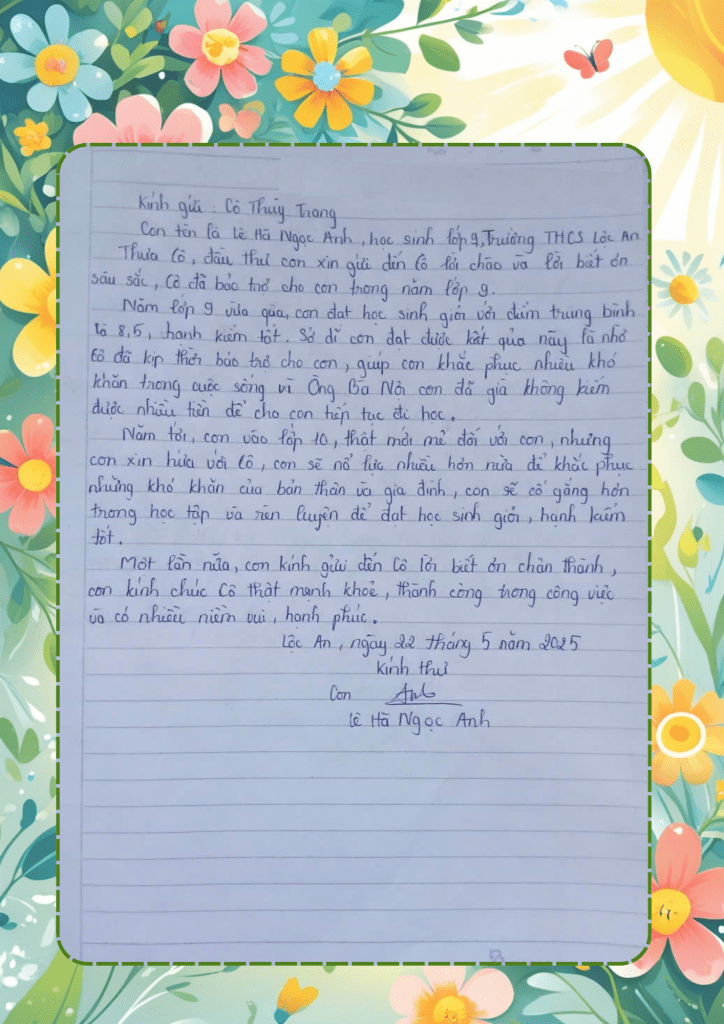 Kính gửi : Cô Thùy Trang
Con tên là Lê Hà Ngọc Anh, học sinh lớp 9, Trường THCS Lộc An
Thưa Cô, đầu thư con xin gửi đến Cô lời chào và lời biết ơn
sâu sắc, Cô đã bảo trợ cho con trong năm lớp 9.
Năm lớp 9 vừa qua, con đạt học sinh giỏi với điểm trung bình
là 8,5, hạnh kiểm tốt. Sở dĩ con đạt được kết quả này là nhờ
Cô đã kịp thời bảo trợ cho con, giúp con khắc phục nhiều khó
khăn trong cuộc sống vì Ông Bà Nội con đã già không kiếm
được nhiều tiền để cho con tiếp tục đi học.
Năm tới, con vào lớp 10, thật mới mẻ đối với con, nhưng
con xin hứa với Cô, con sẽ nổ lực nhiều hơn nữa để khắc phục
những khó khăn của bản thân và gia đình, con sẽ cố gắng hơn
trong học tập và rèn luyện để đạt học sinh giỏi, hạnh kiểm
tốt.
Một lần nữa, con kính gửi đến Cô lời biết ơn chân thành,
con kính chúc Cô thật mạnh khoẻ, thành công trong công việc
và có nhiều niềm vui, hạnh phúc.
Lộc An, ngày 22 tháng 5 năm 2025
Kính thư
Con Anh
Lê Hà Ngọc Anh